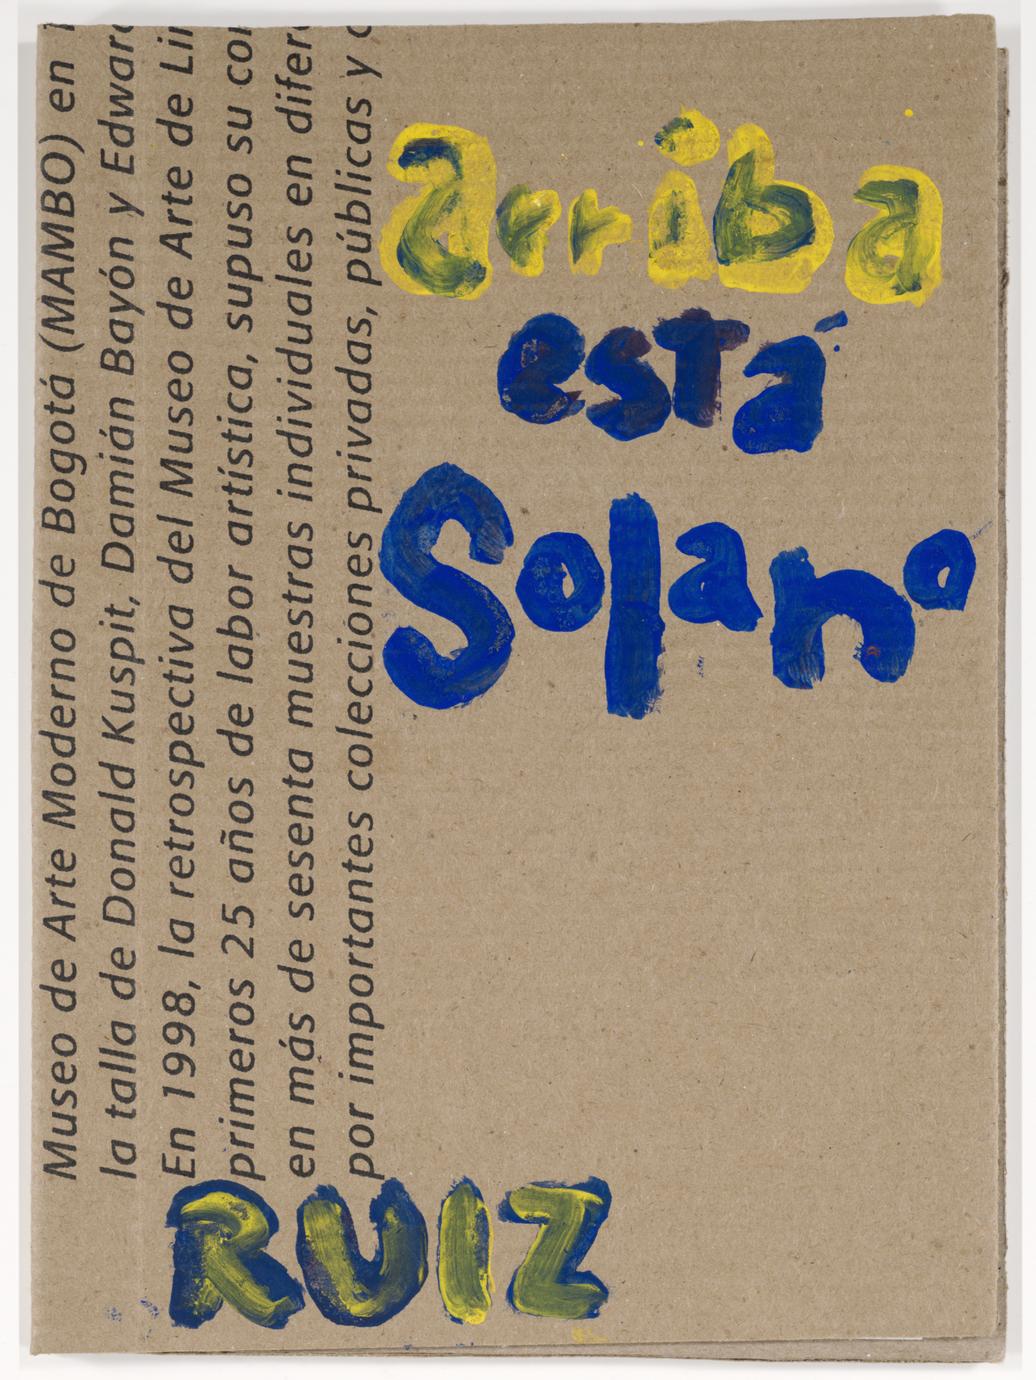 arriba
está
Solano
RUIZ
Museo de Arte Moderno de Bogotá (MAMBO) en
la talla de Donald Kuspit, Damián Bayón y Edward
En 1998, la retrospectiva del Museo de Arte de
primeros 25 años de labor artística, supuso su
en más de sesenta muestras individuales en
por importantes colecciones privadas, públicas y